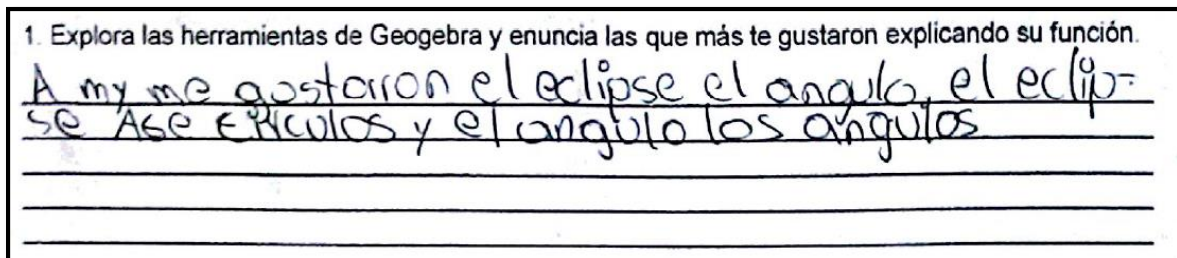 1. Explora las herramientas de Geogebra y enuncia las que más te gustaron explicando su función.
A my me gostarron el eclipse el angulo, el eclip-
se Ase CRICULOS y el angulo los angulos